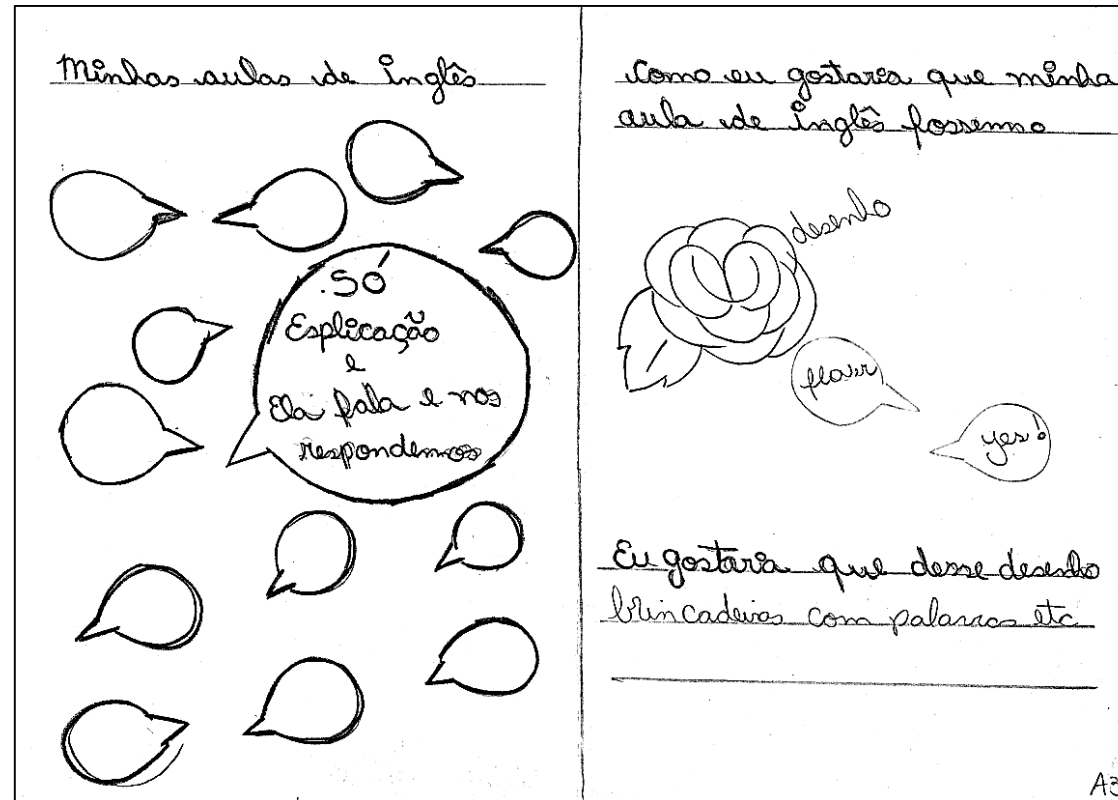 Minhas aulas de inglês
.Só
Esplicação
e
Ela fala e nos
respondemos
Como eu gostaria que minha
aula de inglês fossemo
desenho
flower
yes!
Eu gostaria que desse desenho
brincadeiras com palavras etc
A3